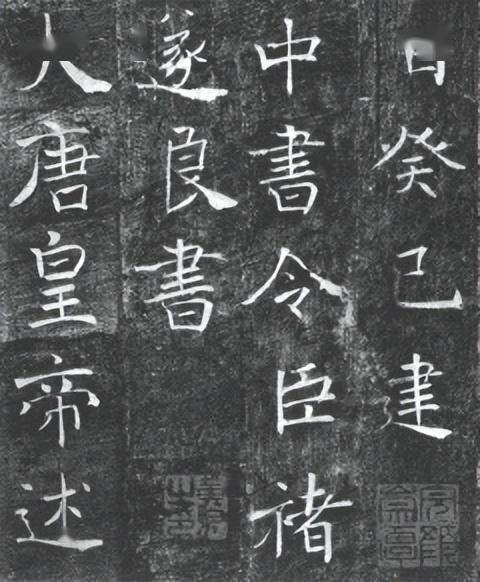 日癸巳建
中書令臣褚
遂良書
大唐皇帝述